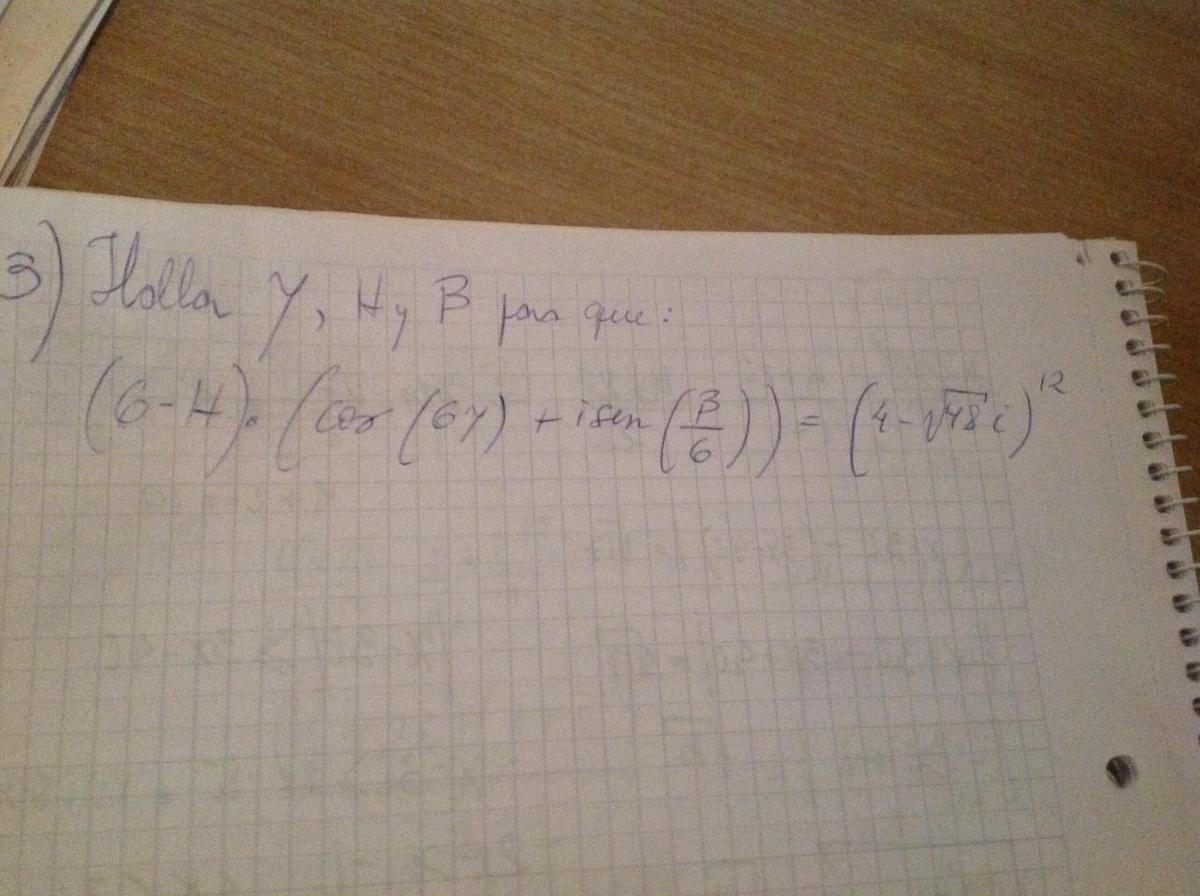 3) Hallar Y, H y B para que:
(6-H)·(cos(6y)+isen(β/6))=(4-√48i)¹²